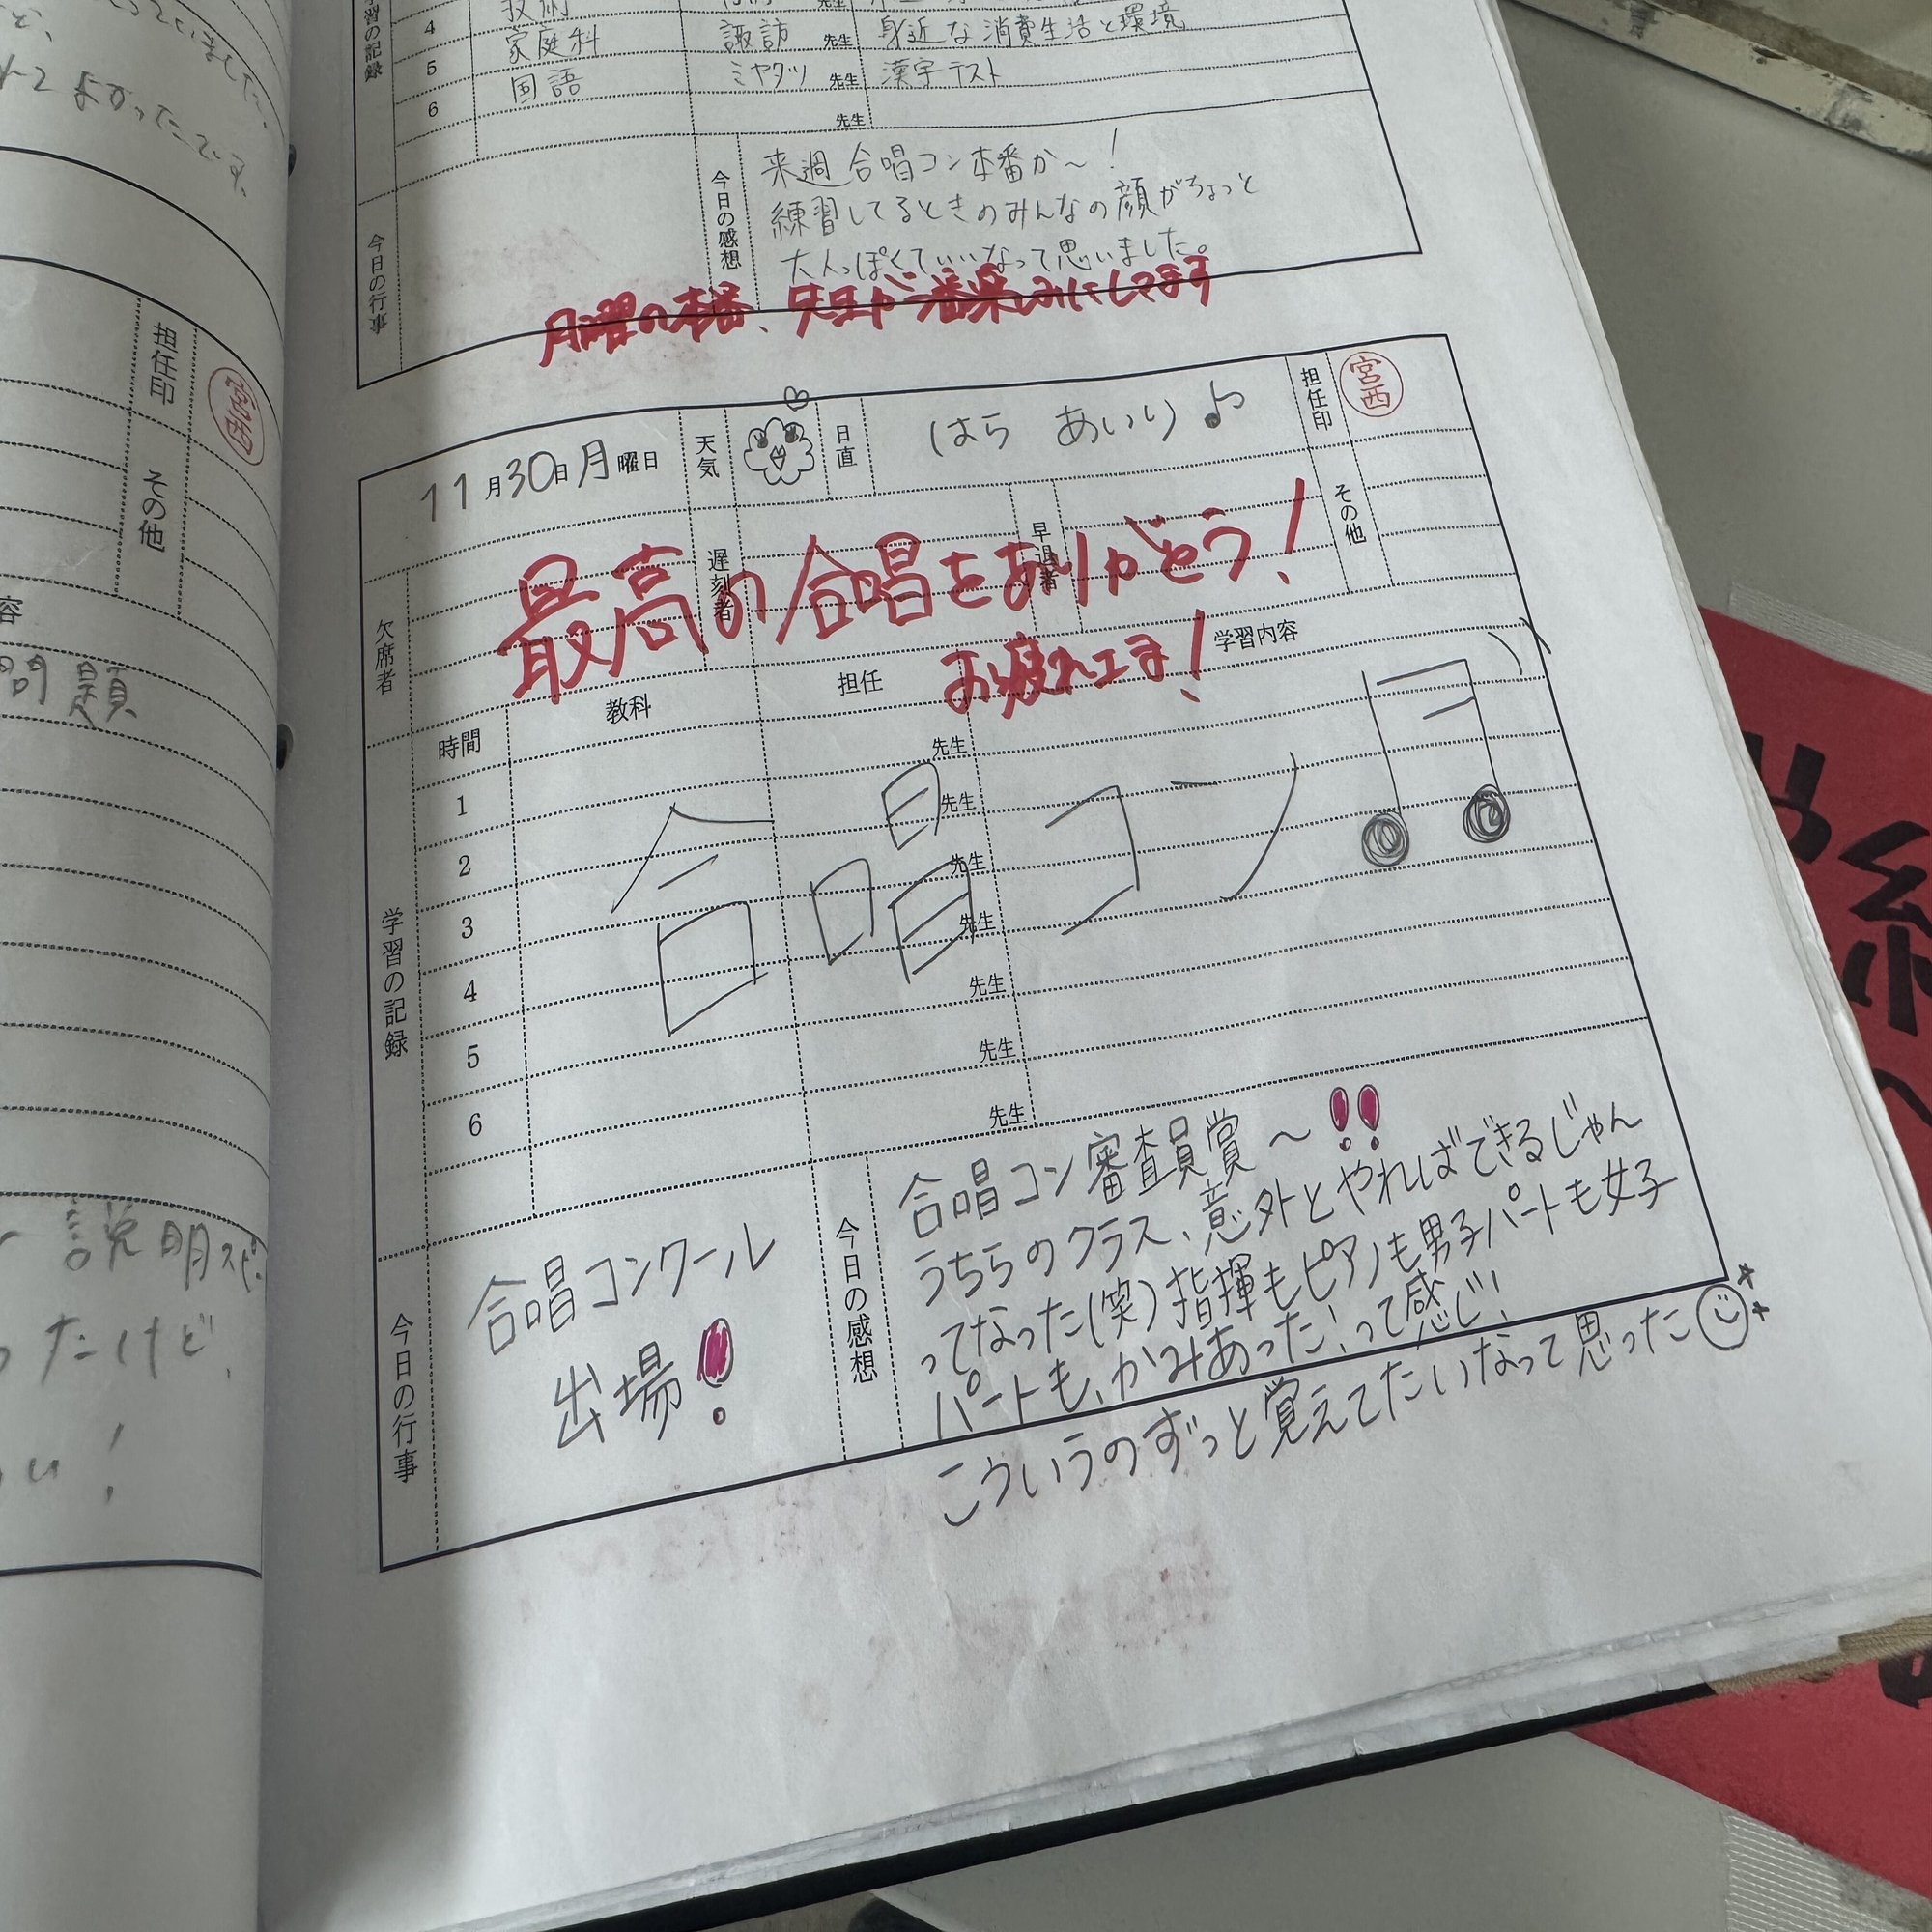 ていました。
れてよかったです。
担任印
宮西
その他
容
問題
説明
ったけど、
!
学習の記録
4 技術 先生
5 家庭科 諏訪 先生 身近な消費生活と環境
6 国語 ミヤタツ 先生 漢字テスト
先生
今日の行事
今日の感想
来週合唱コン本番か〜!
練習してるときのみんなの顔がちょっと
大人っぽくていいなって思いました。
月曜の本番、先生が一番楽しみにしてます
11月30日月曜日 天気 日直 はら あいり♪ 担任印 宮西
欠席者 遅刻者 早退者 その他
最高の合唱をありがとう!
お疲れさま!
学習の記録
時間 教科 担任 学習内容
先生
1 先生
2 先生
3 先生
4 先生
5 先生
6 先生
合唱コン
今日の行事
合唱コンクール
出場!
今日の感想
合唱コン審査員賞〜!!
うちらのクラス、意外とやればできるじゃん
ってなった(笑)指揮もピアノも男子パートも女子
パートも、かみあった!って感じ!
こういうのずっと覚えてたいなって思った